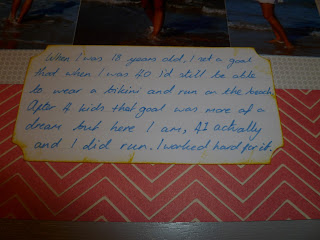 When I was 18 years old, I set a goal
that when I was 40 I'd still be able
to wear a bikini and run on the beach.
After 4 kids that goal was more of a
dream but here I am, 41 actually
and I did run. I worked hard for it.